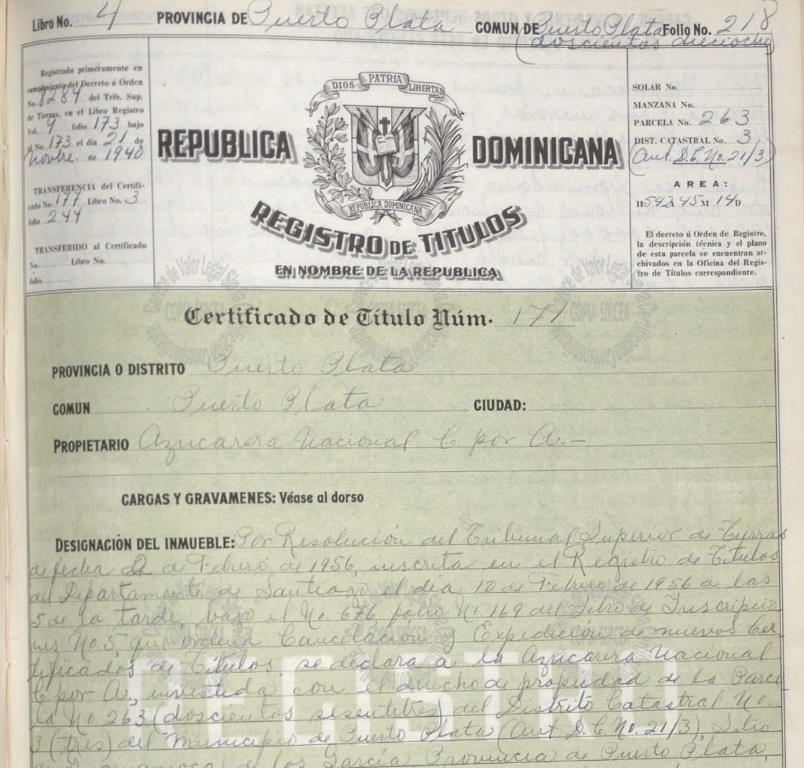 Libro No. 4 PROVINCIA DE Puerto Plata COMUN DE Puerto Plata Folio No. 218
(doscientos dieciocho)
Registrado primeramente en
cumplimiento del Decreto ú Orden
No. 3284 del Trib. Sup.
de Tierras, en el Libro Registro
Vol. 9 folio 173 bajo
el No. 173 el día 21 de
Novbre. de 1940
TRANSFERENCIA del Certifi-
cado No. 177 Libro No. 3
folio 244
TRANSFERIDO al Certificado
No. Libro No.
folio
DIOS PATRIA LIBERTAD
REPUBLICA DOMINICANA
REPUBLICA DOMINICANA
REGISTRO DE TITULOS
EN NOMBRE DE LA REPUBLICA
SOLAR No.
MANZANA No.
PARCELA No. 263
DIST. CATASTRAL No. 3
(Ant. D.C. No. 21/3)
AREA:
H 54 A 45 M 14 D
El decreto ú Orden de Registro,
la descripción técnica y el plano
de esta parcela se encuentran ar-
chivados en la Oficina del Regis-
tro de Títulos correspondiente.
Certificado de Título Núm. 177
PROVINCIA O DISTRITO Puerto Plata
COMUN Puerto Plata CIUDAD:
PROPIETARIO Azucarera Nacional C por A.-
CARGAS Y GRAVAMENES: Véase al dorso
DESIGNACIÓN DEL INMUEBLE: Por Resolución del Tribunal Superior de Tierras
de fecha 2 de Febrero de 1956, inscrita en el Registro de Títulos
del Departamento de Santiago el día 12 de Febrero de 1956 a las
5 de la tarde, bajo el No. 676 folio No. 169 del Libro de Inscripcio
nes No. 5, que ordena Cancelación y Expedición de nuevos Cer
tificados de Títulos se declara a la Azucarera Nacional
C por A, investida con el derecho de propiedad de la Parce
la No. 263 (doscientos sesentitres) del Distrito Catastral No.
3 (tres) del Municipio de Puerto Plata (Ant. D.C. No. 21/3), Sitio
de y los García Provincia de Puerto Plata,
REGISTRO